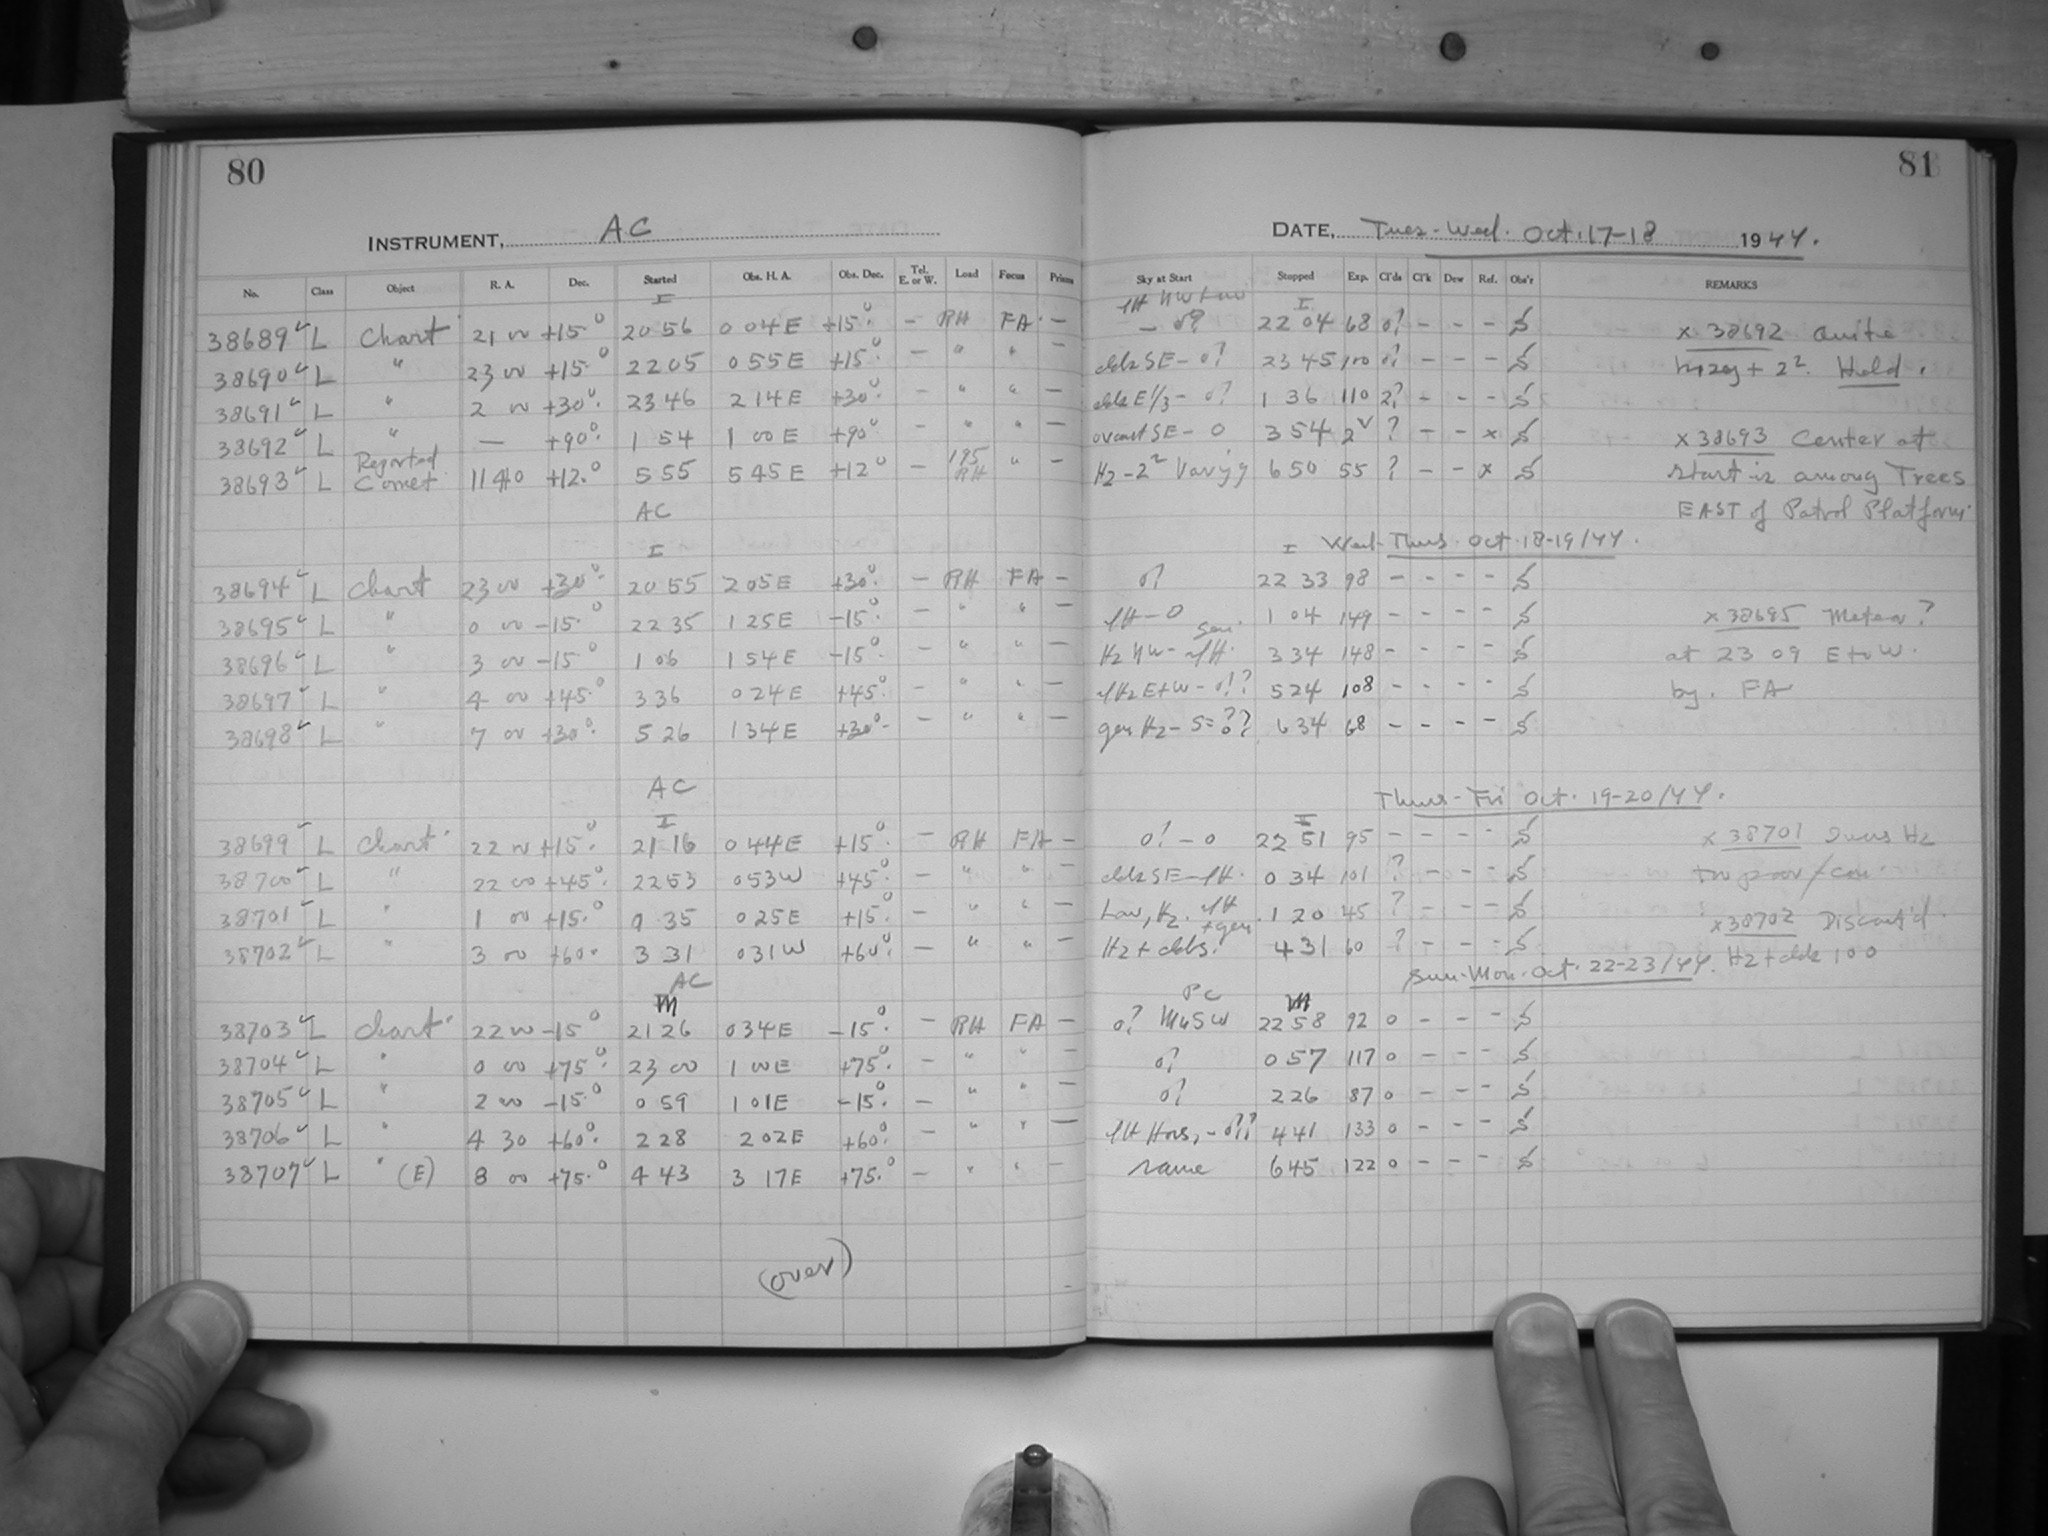 80
81
INSTRUMENT, AC
DATE, Tues-Wed. Oct. 17-18 1944.
No. Class Object R. A. Dec. Started Obs. H. A. Obs. Dec. Tel. E. or W. Load Focus Prisms Sky at Start Stopped Exp. Cl'ds Cl'k Dew Ref. Obs'r REMARKS
I I
38689 L Chart 21 00 +15° 20 56 0 04 E +15° - RH FA - - 0? 22 04 68 0? - - - S x 38692 Quite
38690 L " 23 00 +15° 22 05 0 55 E +15° - " " - clds SE - 0? 23 45 100 0? - - - S hazy + 2². Held.
38691 L " 2 00 +30° 23 46 2 14 E +30° - " " - clds E 1/3 - 0? 1 36 110 2? - - - S
38692 L " — +90° 1 54 1 00 E +90° - " " - ovcast SE - 0 3 54 ? - - x S x 38693 Center at
38693 L Reported Comet 11 40 +12° 5 55 5 45 E +12° - 195 RH " - Hz - 2² Varyg 6 50 55 ? - - x S start is among Trees
AC EAST of Patrol Platform
I I Wed-Thus. Oct. 18-19/44.
38694 L Chart 23 00 +30° 20 55 2 05 E +30° - RH FA - 0? 22 33 98 - - - - S
38695 L " 0 00 -15° 22 35 1 25 E -15° - " " - lH - 0 1 04 149 - - - - S x 38695 Meteor?
38696 L " 3 00 -15° 1 06 1 54 E -15° - " " - Hz NW - lH. 3 34 148 - - - - S at 23 09 E to W.
38697 L " 4 00 +45° 3 36 0 24 E +45° - " " - lHz E+W - 0?? 5 24 108 - - - - S by. FA
38698 L " 7 00 +30° 5 26 1 34 E +30° - " " - gen Hz - 6 34 68 - - - - S
AC Thurs-Fri Oct. 19-20/44.
I I
38699 L Chart 22 00 +15° 21 16 0 44 E +15° - RH FA - 0? - 0 22 51 95 - - - - S x 38701 Hz
38700 L " 22 00 +45° 22 53 0 53 W +45° - " " - clds SE - lH. 0 34 101 ? - - - S too poor/
38701 L " 1 00 +15° 0 35 0 25 E +15° - " " - Low, Hz. lH + gen. 1 20 45 ? - - - S x 38702 Discont'd.
38702 L " 3 00 +60° 3 31 0 31 W +60° - " " - Hz + clds. 4 31 60 ? - - - S Hz + clds 100
AC Sun-Mon. Oct. 22-23/44.
M M
38703 L Chart 22 00 -15° 21 26 0 34 E -15° - RH FA - 0? SW 22 58 92 0 - - - S
38704 L " 0 00 +75° 23 00 1 00 E +75° - " " - 0? 0 57 117 0 - - - S
38705 L " 2 00 -15° 0 59 1 01 E -15° - " " - 0? 2 26 87 0 - - - S
38706 L " 4 30 +60° 2 28 2 02 E +60° - " " - 4 41 133 0 - - - S
38707 L " (E) 8 00 +75° 4 43 3 17 E +75° - " " - same 6 45 122 0 - - - S
(over)